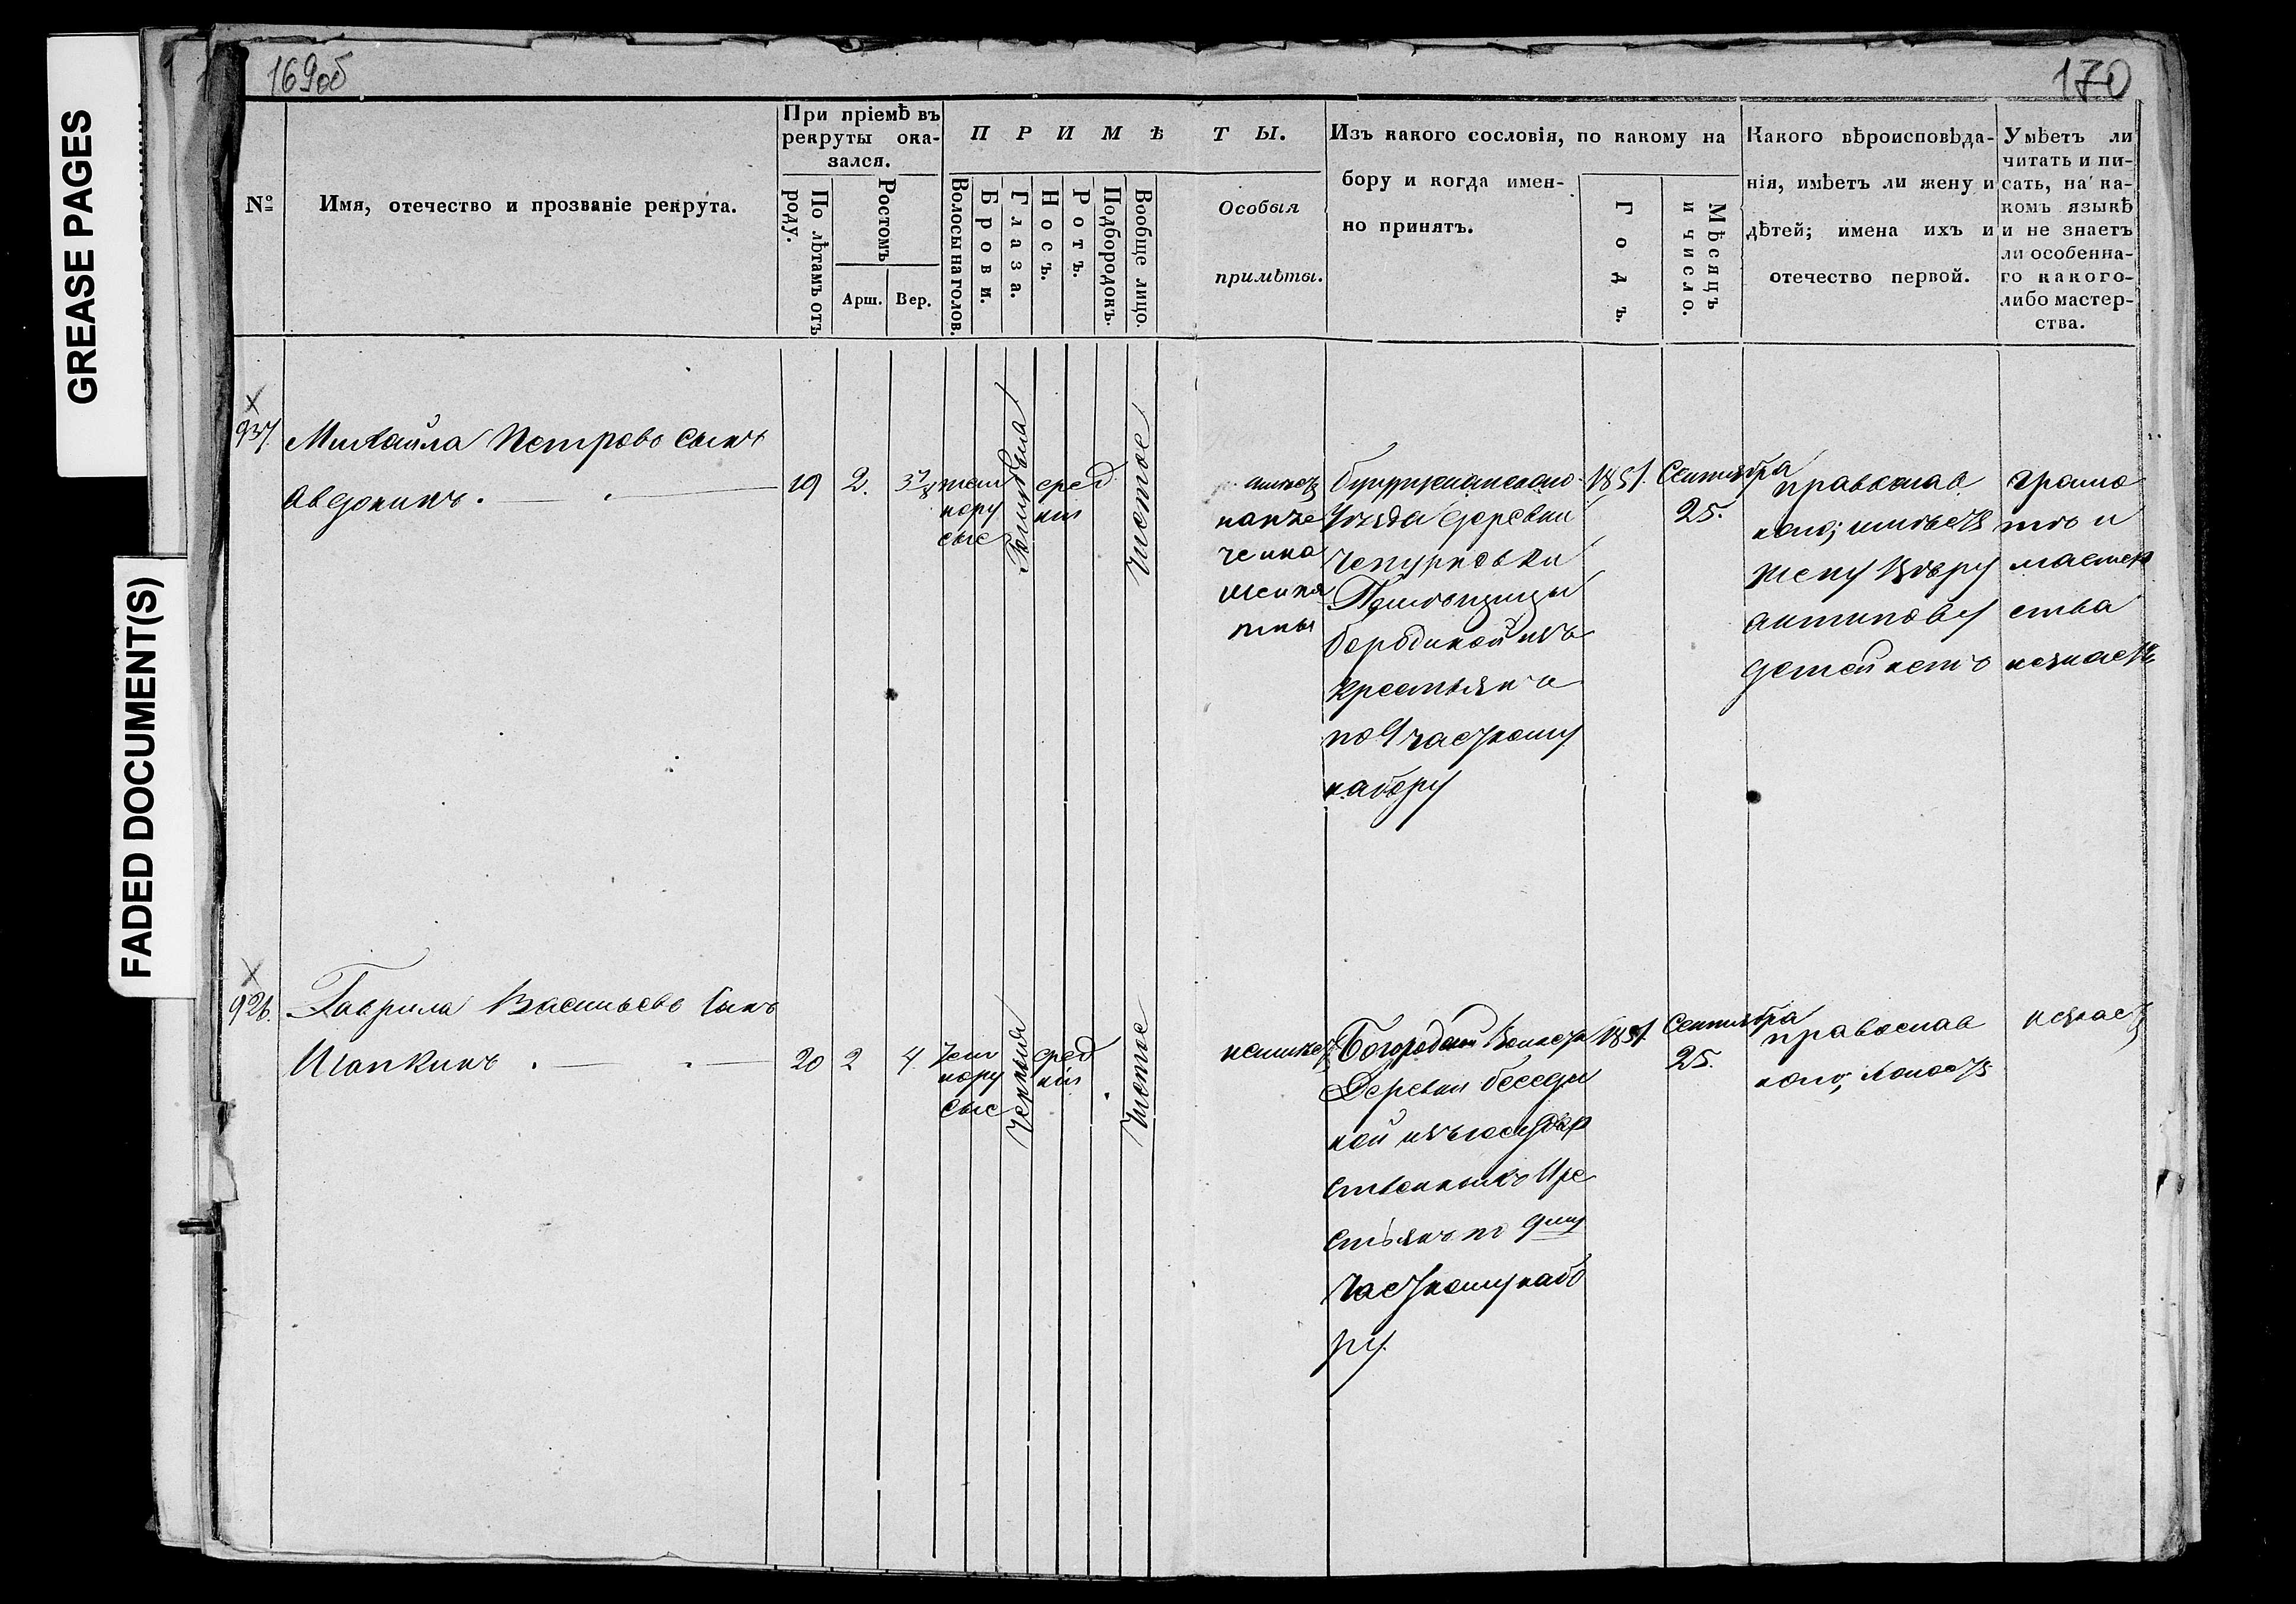 GREASE PAGES
FADED DOCUMENT(S)
169об
170
№
Имя, отечество и прозваніе рекрута.
При пріемѣ въ
рекруты ока-
зался.
По лѣтамъ отъ
роду.
Ростомъ
Арш.
Вер.
ПРИМѢТЫ.
Волосы на голов.
Брови.
Глаза.
Носъ.
Ротъ.
Подбородокъ.
Вообще лицо.
Особыя
примѣты.
Изъ какого сословія, по какому на
бору и когда имен-
но принятъ.
Годъ.
Мѣсяцъ
и число.
Какого вѣроисповѣда-
нія, имѣетъ ли жену и
дѣтей; имена ихъ и
отечество первой.
Умѣетъ ли
читать и пи-
сать, на ка-
комъ языкѣ
и не знаетъ
ли особенна-
го какого-
либо мастер-
ства.
937.
Михайла Петровъ сынъ
Авдонинъ.
19
2.
темн
нору
сые
Голубыя
сред
нія
Чистое
имеетъ
Бугурусланскаго
Уѣзда деревни
Чепурновки
Помѣщицы
Бородиной изъ
крестьянъ
по 9 частному
набору
1851.
Сентября
25.
православ
наго; имѣетъ
жену Вѣру
Антипову
детей нетъ
грамо
тѣ и
мастер
ства
незнаетъ
926.
Гаврила Васильевъ сынъ
Шапкинъ.
20
2
4.
тем
нору
сые
Черныя
сред
нія
Чистое
неимеетъ
Деревни
изъ государ
ственныхъ кре
стьянъ по 9му
частному наб
ру
1851.
Сентября
25.
православ
наго, холостъ
незнаетъ